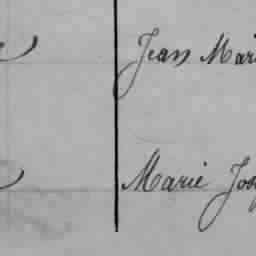 Jean Mari
Marie Jos